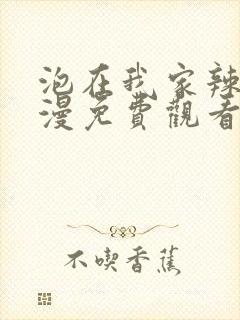 泡在我家辣
漫免費觀看
不喫香蕉